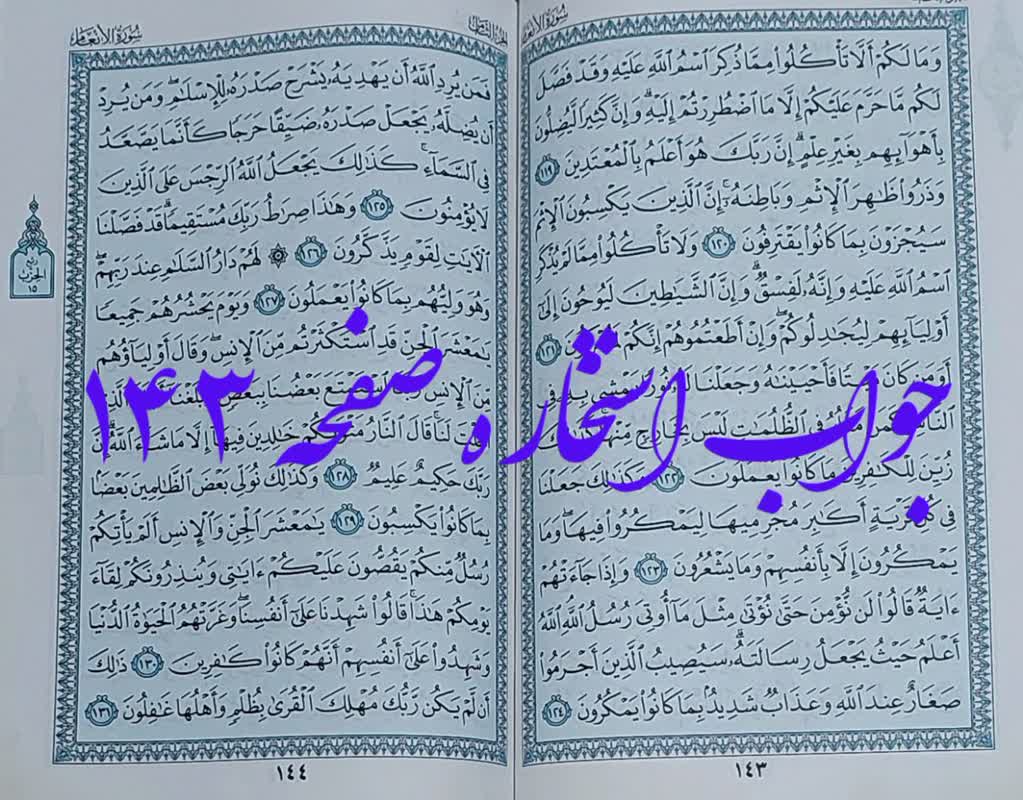 سُورَةُ الأَنْعَامِ
وَمَا لَكُمْ أَلَّا تَأْكُلُوا۟ مِمَّا ذُكِرَ ٱسْمُ ٱللَّهِ عَلَيْهِ وَقَدْ فَصَّلَ
لَكُم مَّا حَرَّمَ عَلَيْكُمْ إِلَّا مَا ٱضْطُرِرْتُمْ إِلَيْهِ ۗ وَإِنَّ كَثِيرًا لَّيُضِلُّونَ
بِأَهْوَآئِهِم بِغَيْرِ عِلْمٍ ۗ إِنَّ رَبَّكَ هُوَ أَعْلَمُ بِٱلْمُعْتَدِينَ ١١٩
وَذَرُوا۟ ظَٰهِرَ ٱلْإِثْمِ وَبَاطِنَهُۥٓ ۚ إِنَّ ٱلَّذِينَ يَكْسِبُونَ ٱلْإِثْمَ
سَيُجْزَوْنَ بِمَا كَانُوا۟ يَقْتَرِفُونَ ١٢٠ وَلَا تَأْكُلُوا۟ مِمَّا لَمْ يُذْكَرِ
ٱسْمُ ٱللَّهِ عَلَيْهِ وَإِنَّهُۥ لَفِسْقٌ ۗ وَإِنَّ ٱلشَّيَٰطِينَ لَيُوحُونَ إِلَىٰٓ
أَوْلِيَآئِهِمْ لِيُجَٰدِلُوكُمْ ۖ وَإِنْ أَطَعْتُمُوهُمْ إِنَّكُمْ ١٢١
أَوَمَن كَانَ مَيْتًا فَأَحْيَيْنَٰهُ وَجَعَلْنَا لَهُۥ نُورًا يَمْشِى بِهِۦ فِى
ٱلنَّاسِ كَمَن مَّثَلُهُۥ فِى ٱلظُّلُمَٰتِ لَيْسَ بِخَارِجٍ مِّنْهَا ۚ كَذَٰلِكَ
زُيِّنَ لِلْكَٰفِرِينَ مَا كَانُوا۟ يَعْمَلُونَ ١٢٢ وَكَذَٰلِكَ جَعَلْنَا
فِى كُلِّ قَرْيَةٍ أَكَٰبِرَ مُجْرِمِيهَا لِيَمْكُرُوا۟ فِيهَا ۖ وَمَا
يَمْكُرُونَ إِلَّا بِأَنفُسِهِمْ وَمَا يَشْعُرُونَ ١٢٣ وَإِذَا جَآءَتْهُمْ
ءَايَةٌ قَالُوا۟ لَن نُّؤْمِنَ حَتَّىٰ نُؤْتَىٰ مِثْلَ مَآ أُوتِىَ رُسُلُ ٱللَّهِ ۘ ٱللَّهُ
أَعْلَمُ حَيْثُ يَجْعَلُ رِسَالَتَهُۥ ۗ سَيُصِيبُ ٱلَّذِينَ أَجْرَمُوا۟
صَغَارٌ عِندَ ٱللَّهِ وَعَذَابٌ شَدِيدٌۢ بِمَا كَانُوا۟ يَمْكُرُونَ ١٢٤
١٤٣
سُورَةُ الأَنْعَامِ
فَمَن يُرِدِ ٱللَّهُ أَن يَهْدِيَهُۥ يَشْرَحْ صَدْرَهُۥ لِلْإِسْلَٰمِ ۖ وَمَن يُرِدْ
أَن يُضِلَّهُۥ يَجْعَلْ صَدْرَهُۥ ضَيِّقًا حَرَجًا كَأَنَّمَا يَصَّعَّدُ
فِى ٱلسَّمَآءِ ۚ كَذَٰلِكَ يَجْعَلُ ٱللَّهُ ٱلرِّجْسَ عَلَى ٱلَّذِينَ
لَا يُؤْمِنُونَ ١٢٥ وَهَٰذَا صِرَٰطُ رَبِّكَ مُسْتَقِيمًا ۗ قَدْ فَصَّلْنَا
ٱلْءَايَٰتِ لِقَوْمٍ يَذَّكَّرُونَ ١٢٦ ۞ لَهُمْ دَارُ ٱلسَّلَٰمِ عِندَ رَبِّهِمْ ۖ
وَهُوَ وَلِيُّهُم بِمَا كَانُوا۟ يَعْمَلُونَ ١٢٧ وَيَوْمَ يَحْشُرُهُمْ جَمِيعًا
يَٰمَعْشَرَ ٱلْجِنِّ قَدِ ٱسْتَكْثَرْتُم مِّنَ ٱلْإِنسِ ۖ وَقَالَ أَوْلِيَآؤُهُم
مِّنَ ٱلْإِنسِ رَبَّنَا ٱسْتَمْتَعَ بَعْضُنَا بِبَعْضٍ وَبَلَغْنَآ أَجَلَنَا ٱلَّذِىٓ
أَجَّلْتَ لَنَا ۚ قَالَ ٱلنَّارُ مَثْوَىٰكُمْ خَٰلِدِينَ فِيهَآ إِلَّا مَا شَآءَ ٱللَّهُ ۗ إِنَّ
رَبَّكَ حَكِيمٌ عَلِيمٌ ١٢٨ وَكَذَٰلِكَ نُوَلِّى بَعْضَ ٱلظَّٰلِمِينَ بَعْضًۢا
بِمَا كَانُوا۟ يَكْسِبُونَ ١٢٩ يَٰمَعْشَرَ ٱلْجِنِّ وَٱلْإِنسِ أَلَمْ يَأْتِكُمْ
رُسُلٌ مِّنكُمْ يَقُصُّونَ عَلَيْكُمْ ءَايَٰتِى وَيُنذِرُونَكُمْ لِقَآءَ
يَوْمِكُمْ هَٰذَا ۚ قَالُوا۟ شَهِدْنَا عَلَىٰٓ أَنفُسِنَا ۖ وَغَرَّتْهُمُ ٱلْحَيَوٰةُ ٱلدُّنْيَا
وَشَهِدُوا۟ عَلَىٰٓ أَنفُسِهِمْ أَنَّهُمْ كَانُوا۟ كَٰفِرِينَ ١٣٠ ذَٰلِكَ
أَن لَّمْ يَكُن رَّبُّكَ مُهْلِكَ ٱلْقُرَىٰ بِظُلْمٍ وَأَهْلُهَا غَٰفِلُونَ ١٣١
١٤٤
ربع الحزب ١٥
جواب استخاره صفحه ۱۴۳